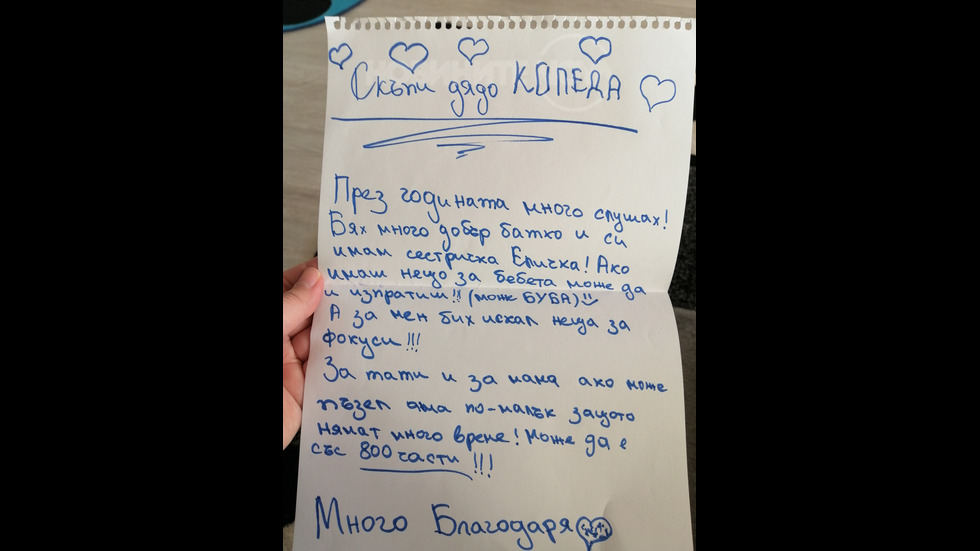 Скъпи дядо КОЛЕДА
През годината много слушах!
Бях много добър батко и си
имам сестричка Еличка! Ако
имаш нещо за бебета може да
и изпратиш!! (може БУБА)
А за мен бих искал неща за
фокуси!!!
За тати и за мама ако може
пъзел ама по-малък защото
нямат много време! Може да е
със 800 части!!!
Много Благодаря